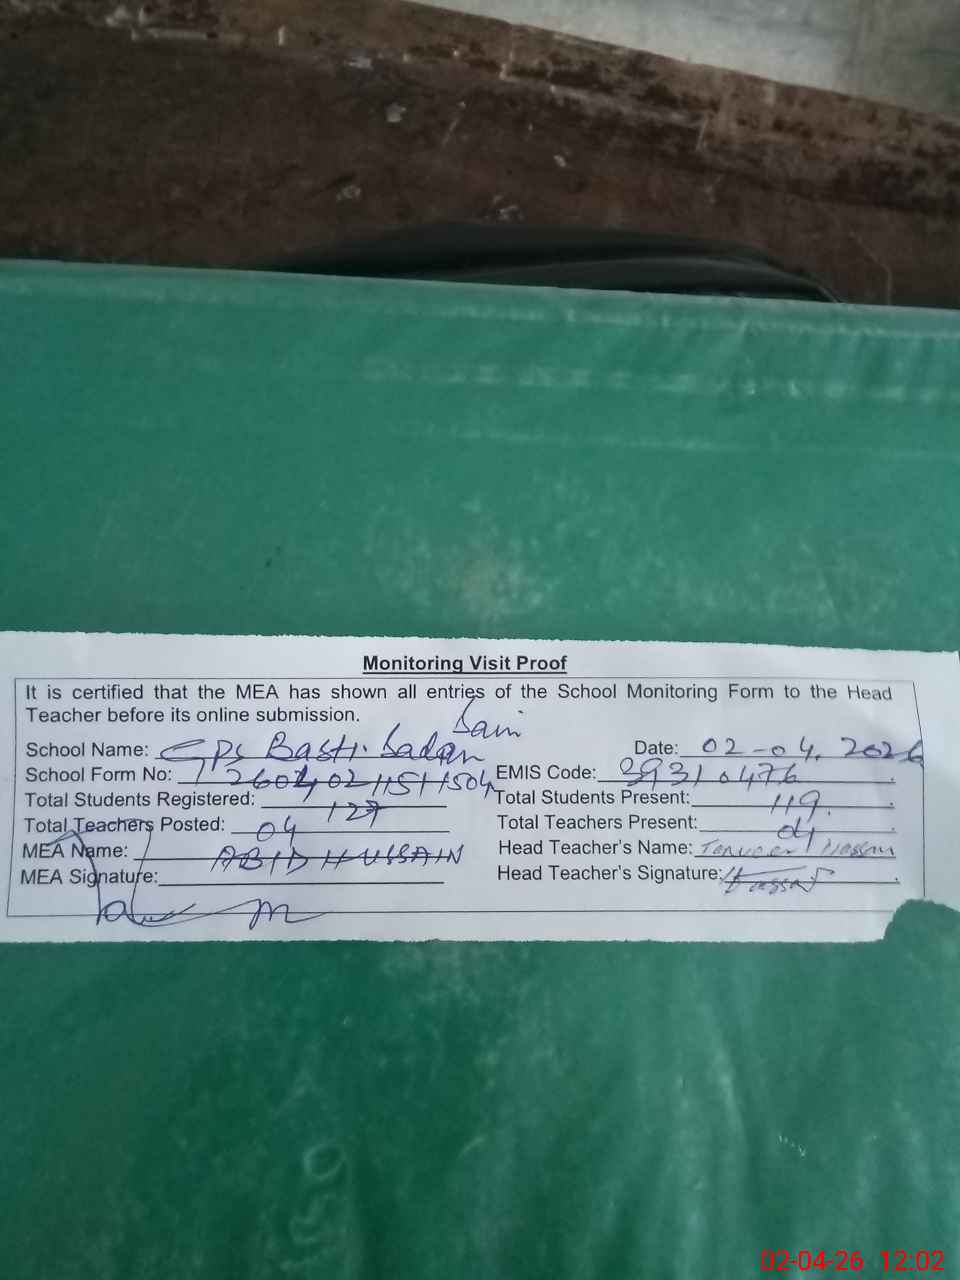 Monitoring Visit Proof
It is certified that the MEA has shown all entries of the School Monitoring Form to the Head
Teacher before its online submission.
School Name: GPS Basti Sadan Sain Date: 02-04-2026
School Form No: 26040211511504 EMIS Code: 39310476
Total Students Registered: 127 Total Students Present: 119
Total Teachers Posted: 04 Total Teachers Present: 04
MEA Name: ABID HUSSAIN Head Teacher's Name: Tanveer
MEA Signature: Head Teacher's Signature:
02-04-26 12:02